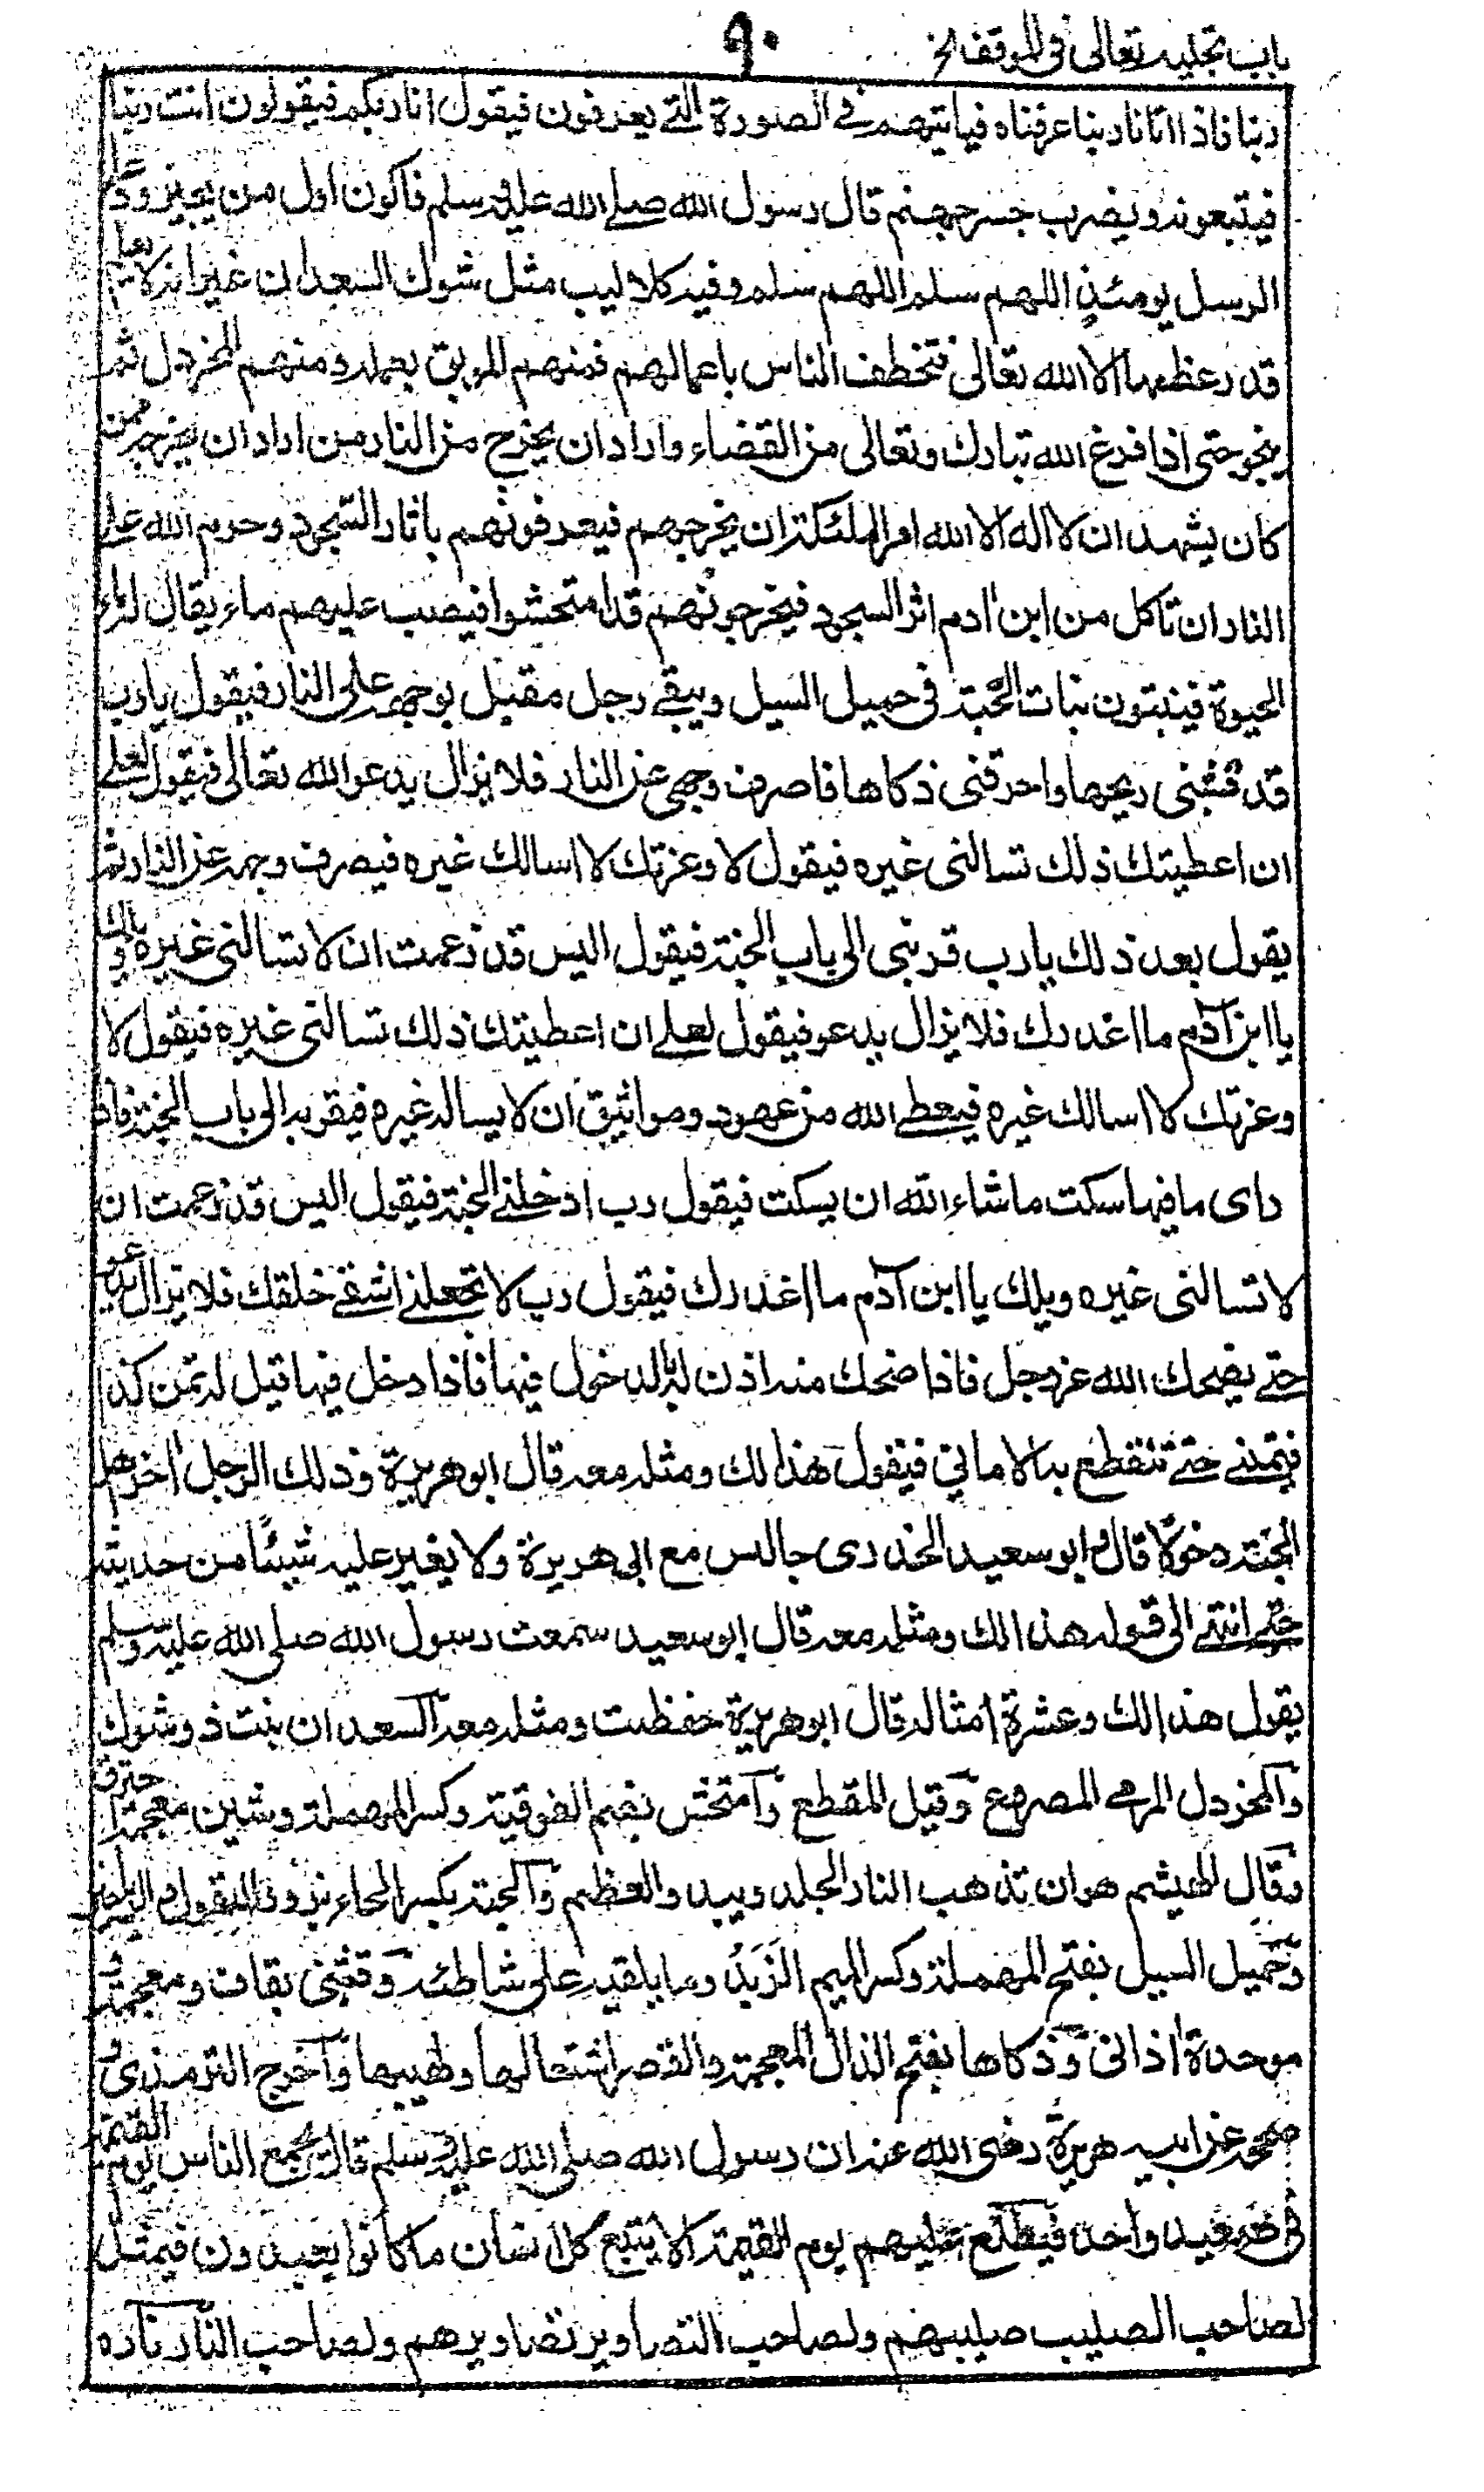 باب تجليه تعالى فى الموقف الخ
٩٠
ربنا فاذا اتانا ربنا عرفناه فياتيهم فى الصورة التے يعرفون فيقول انا ربكم فيقولون انت ربنا
فيتبعونه ويضرب جسر جهنم قال رسول الله صلے الله عليه وسلم فاكون اول من يجيز ودعاء
الرسل يومئذٍ اللهم سلم اللهم سلم وفيه كلاليب مثل شوك السعدان غير انه لا يعلم
قدر عظمها الا الله تعالى فتخطف الناس باعمالهم فمنهم الموبق بعمله ومنهم المخردل ثم
ينجو حتى اذا فرغ الله تبارك وتعالى من القضاء واراد ان يخرج من النار من اراد ان يخرجه ممن
كان يشهد ان لا اله الا الله امر الملئكة ان يخرجهم فيعرفونهم باثار السجود وحرم الله على
النار ان تاكل من ابن ادم اثر السجود فيخرجونهم قد امتحشوا فيصب عليهم ماء يقال له ماء
الحيوة فينبتون نبات الحبة فى حميل السيل ويبقے رجل مقبل بوجهه على النار فيقول يارب
قد قشبنى ريحها واحرقنى ذكاها فاصرف وجهى عن النار فلا يزال يدعو الله تعالى فيقول لعلے
ان اعطيتك ذلك تسالنى غيره فيقول لا وعزتك لا اسالك غيره فيصرف وجهه عن النار ثم
يقول بعد ذلك يارب قربنى الى باب الجنة فيقول اليس قد زعمت ان لا تسالنى غيره ويلك
يا ابن آدم ما اغدرك فلا يزال يدعو فيقول لعلے ان اعطيتك ذلك تسالنى غيره فيقول لا
وعزتك لا اسالك غيره فيعطے الله من عهود ومواثيق ان لا يساله غيره فيقربه الى باب الجنة فاذا
راى ما فيها سكت ماشاء الله ان يسكت فيقول رب ادخلنے الجنة فيقول اليس قد زعمت ان
لا تسالنى غيره ويلك يا ابن آدم ما اغدرك فيقول رب لا تجعلنے اشقے خلقك فلا يزال يدعو
حتے يضحك الله عز وجل فاذا ضحك منه اذن له بالدخول فيها فاذا دخل فيها قيل له تمن كذا
فيتمنے حتے تنقطع به الامانى فيقول هذا لك ومثله معه قال ابو هريرة وذلك الرجل اخر اهل
الجنة دخولا قال وابو سعيد الخدرى جالس مع ابى هريرة ولا يغير عليه شيئًا من حديثه
حتے انتهے الى قوله هذا لك ومثله معه قال ابو سعيد سمعت رسول الله صلى الله عليه وسلم
يقول هذا لك وعشرة امثاله قال ابو هريرة حفظت ومثله معه السعدان بنت ذو شوك
والمخردل المرمے المصروع وقيل المقطع وامتحش بضم الفوقية وكسر المهملة وشين معجمة احترق
وقال الهيثم هو ان تذهب النار الجلد ويبدو العظم والحبة بكسر الحاء بزور البقول
وحميل السيل بفتح المهملة وكسر الميم الزَبَدُ وما يلقيه على شاطئه وقشبنى بقاف ومعجمة و
موحدة اذانى وذكاها بفتح الذال المعجمة والقصر اشتعالها ولهيبها واخرج الترمذى و
صححه عن ابے هريرة رضى الله عنه ان رسول الله صلى الله عليه وسلم قال يجمع الناس يوم القيمة
فى صعيد واحد فيطلع عليهم يوم القيمة الا يتبع كل انسان ما كانوا يعبدون فيمثل
لصاحب الصليب صليبهم ولصاحب التصاوير تصاويرهم ولصاحب النار ناره